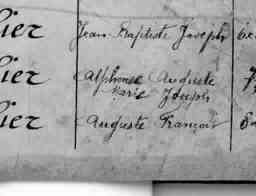 lier Jean Baptiste Joseph
lier Alphonse Auguste
Marie Joseph
lier Auguste François